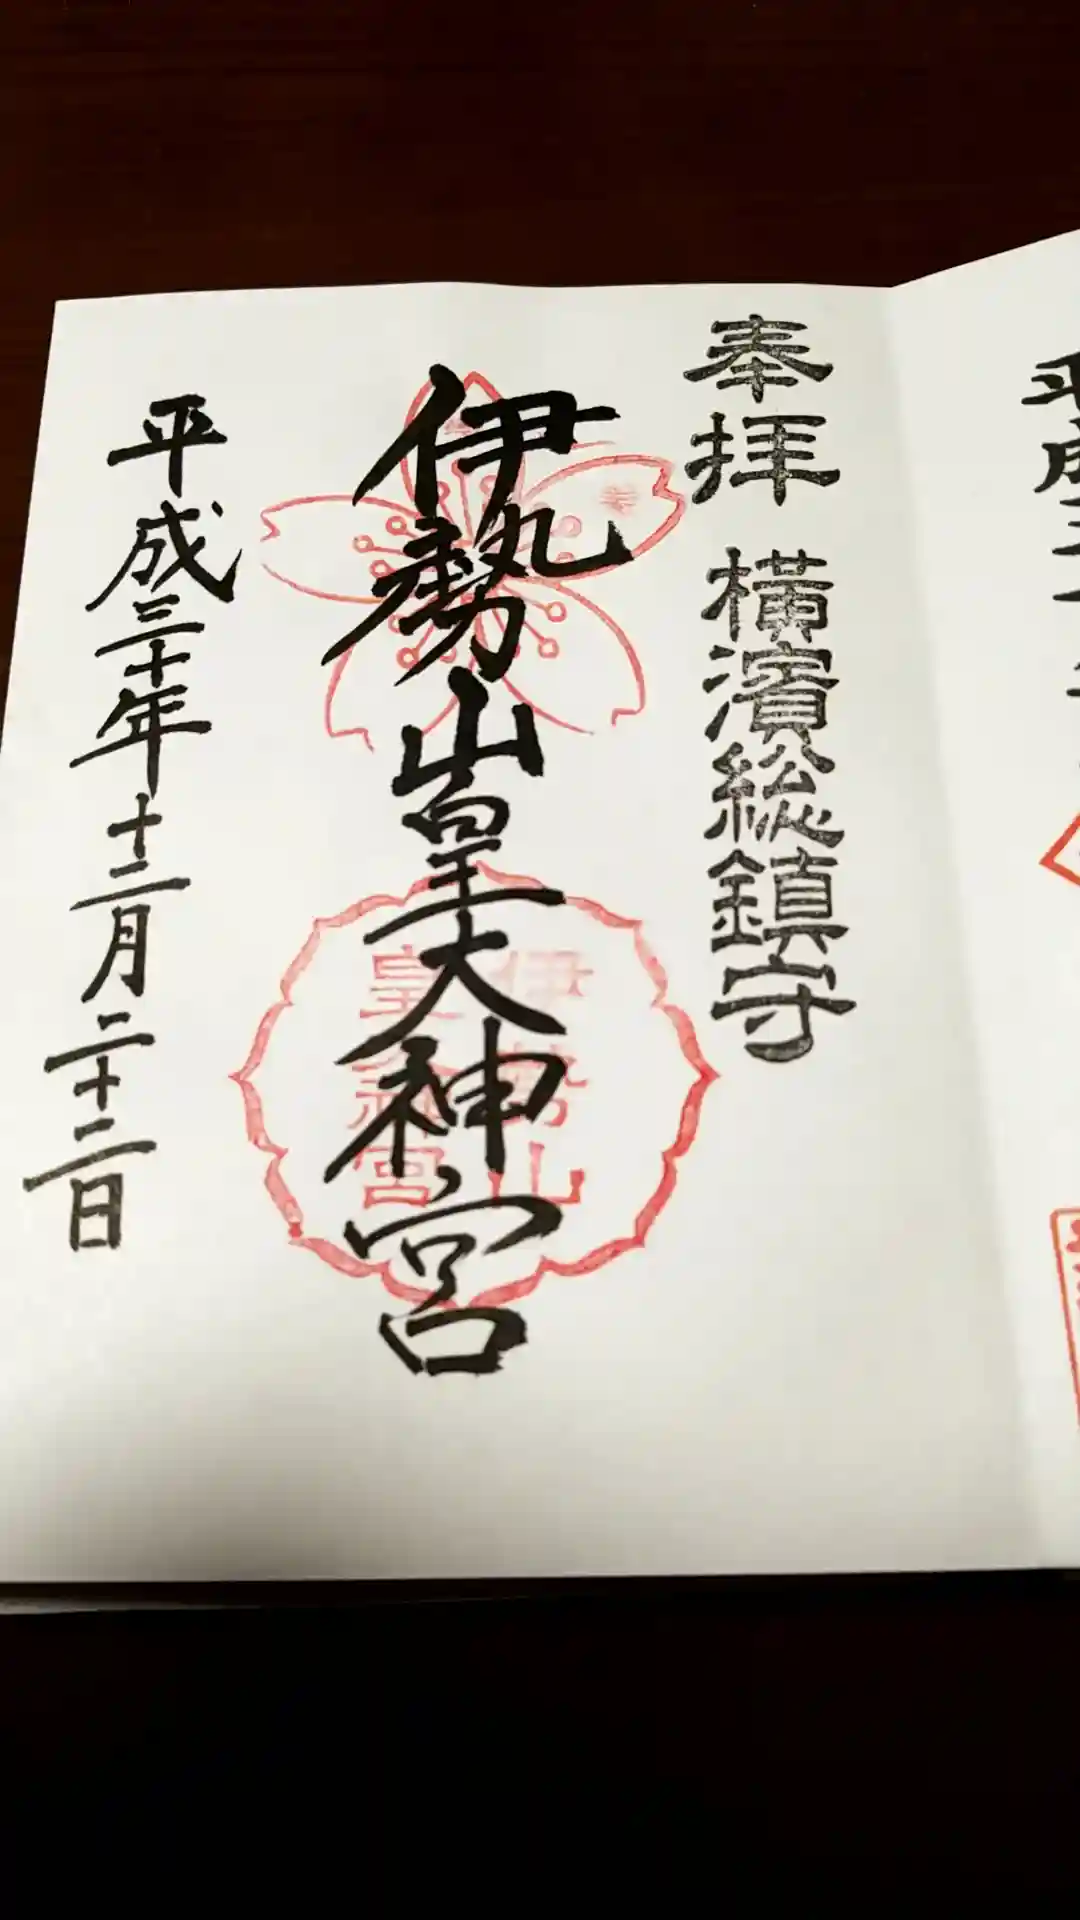 奉拝 横濱総鎮守
伊勢山皇大神宮
伊勢山
皇大神宮
平成三十年十二月二十二日